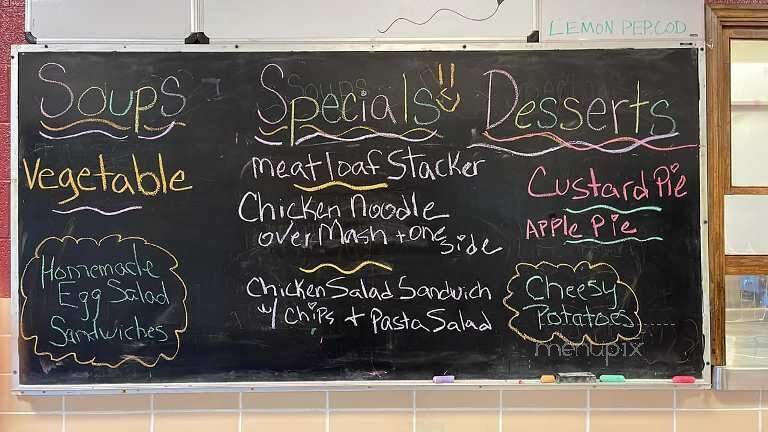 LEMON PEPCOD
Soups
Vegetable
Homemade
Egg Salad
Sandwiches
Specials
meatloaf Stacker
Chicken Noodle
over Mash + one side
Chicken Salad Sandwich
w/ Chips + Pasta Salad
Desserts
Custard Pie
Apple Pie
Cheesy
Potatoes
menupix